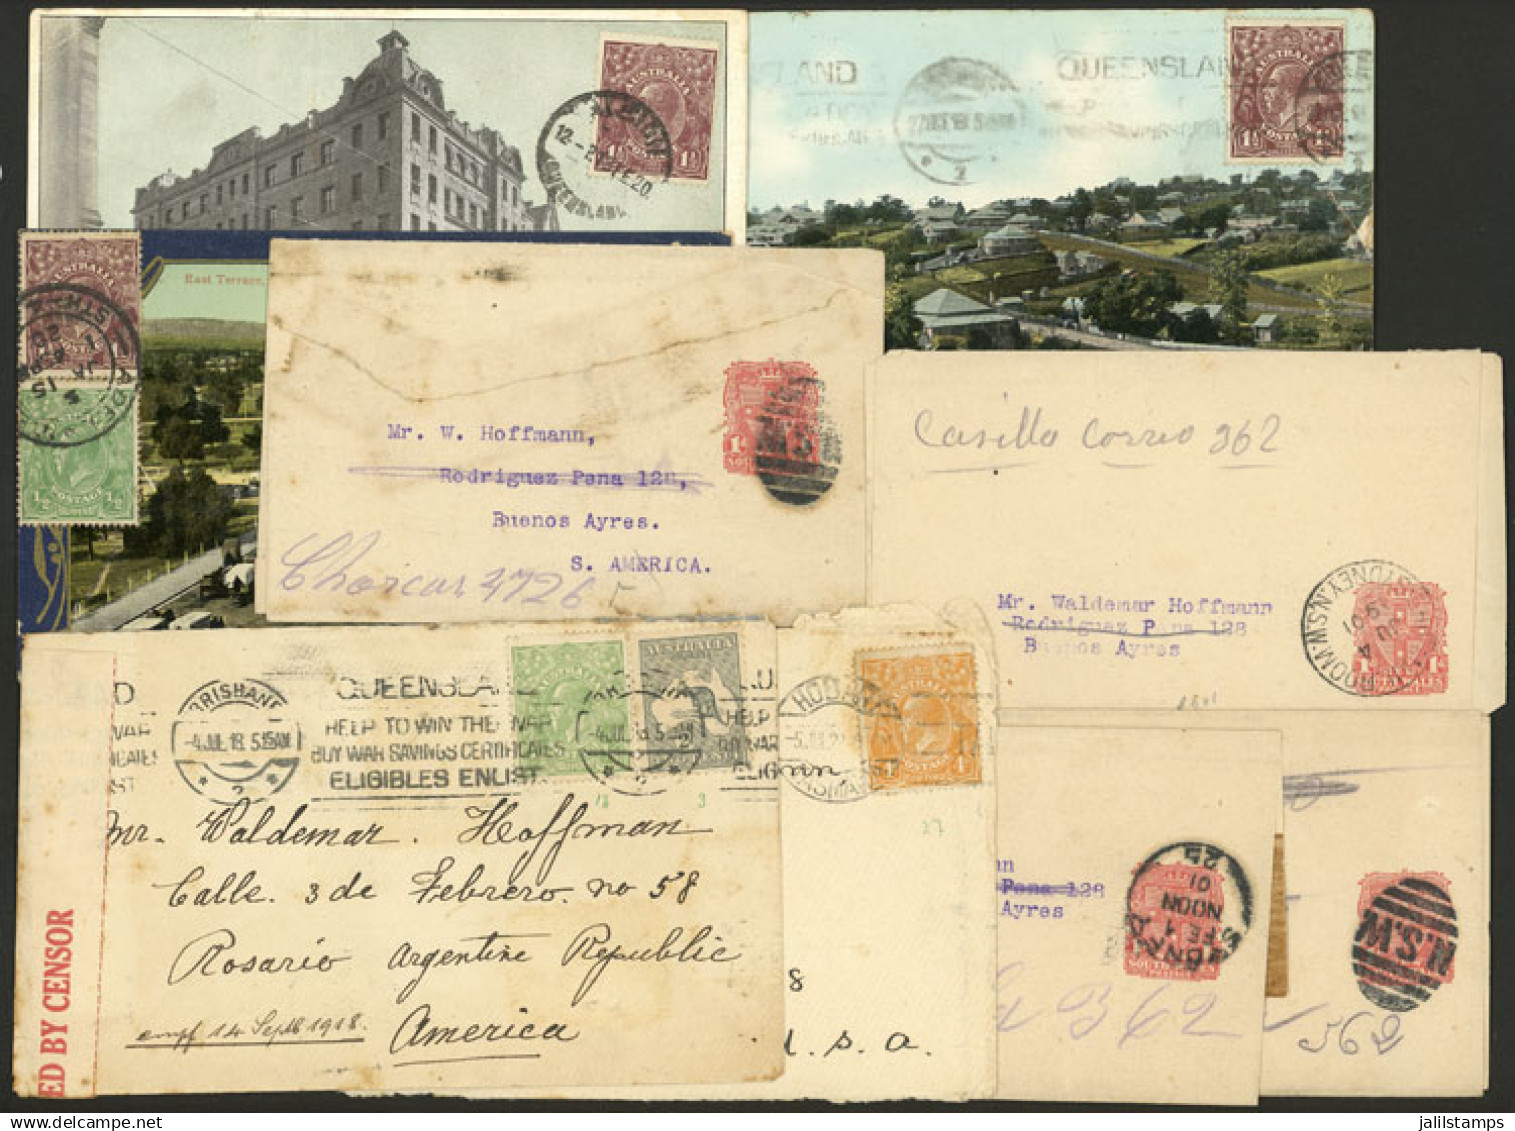 AUSTRALIA
QUEENSLAND
12-
20
QUEENSLAND
LAND
QUEENSLAN
AUSTRALIA
POSTAGE
East Terrace,
AUSTRALIA
POSTAGE
Mr. W. Hoffmann,
Rodriguez Pena 128,
Buenos Ayres.
S. AMERICA.
Charcas 4726
Casilla Correo 362
ROOM SYDNEY N.S.W
Mr. Waldemar Hoffmann
Rodriguez Pena 128
Buenos Ayres
BRISBANE
4 JUL 18 5.15AM
QUEENSLAND
HELP TO WIN THE WAR
BUY WAR SAVINGS CERTIFICATES
ELIGIBLES ENLIST.
AUSTRALIA
HOBART
TASMANIA
AUSTRALIA
POSTAGE
18
3
27
Mr. Waldemar Hoffman
Calle 3 de Febrero no 58
Rosario Argentine Republic
America
empf 14 Septb 1918.
ED BY CENSOR
8
u. s. a.
nn
Pena 128
Ayres
NOON
362
N.S.W.
362
jalilstamps